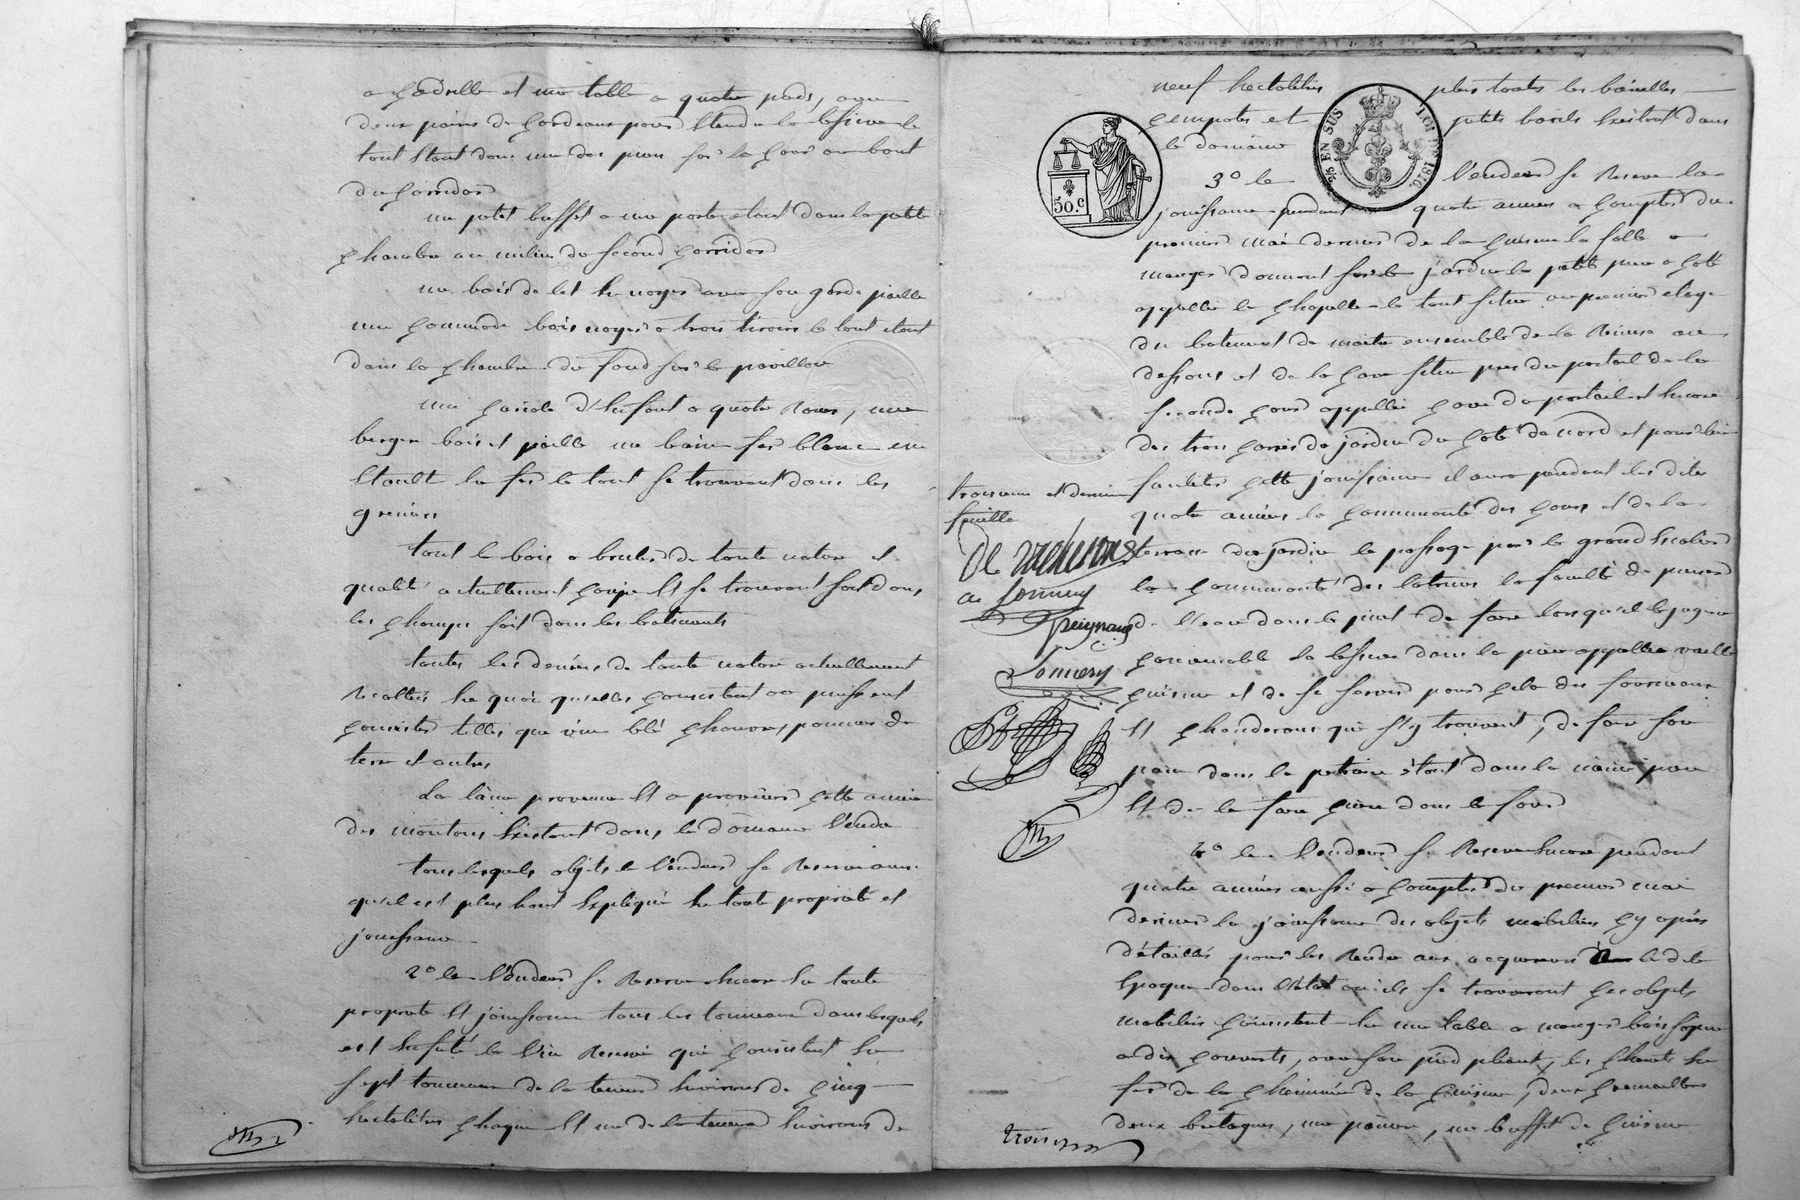 a chapelle et une table a quatre pieds, avec
deux paires de cordeaux pour étendre la lessive le
tout étant dans une des pièces sur la cour au bout
du corridor
un petit buffet a une porte étant dans la petite
chambre au milieu du second corridor
un bois de lit en noyer avec son garde paille
une commode bois noyer a trois tiroirs le tout étant
dans la chambre du fond sur le pavillon
une cariole d'enfant a quatre roues, une
berger bois et paille un bain fer blanc en
le tout se trouvant dans les
greniers
tout le bois a bruler de toute nature et
qualité actuellement coupé et se trouvant soit dans
les champs soit dans les batiments
toutes les denrées de toute nature actuellement
recoltées en quoi qu'elles consistent ou puissent
consister telles que vin blé chanvre, pommes de
terre et autres
La laine provenue et a provenir cette année
des moutons existant dans le domaine vendu
tous lesquels objets le vendeur se reserve ainsi
qu'il est plus haut expliqué en toute propriété et
jouissance
2° le vendeur se reserve encore en toute
propriété et jouissance tous les tonneaux dans lesquels
est enfuté le vin reservé qui consistent en
sept tonneaux de la teneur environ de cinq
hectolitres chaque et un de la teneur environ de
neuf hectolitres plus toutes les bareilles
et petits barils existant dans
le domaine
3° le vendeur se reserve la
jouissance pendant quatre années a compter du
premier mai dernier de la cuisine la salle a
manger donnant sur le jardin la petite piece a coté
appellée la chapelle le tout situé au premier etage
du batiment de maitre ensemble de la remise au
dessous et de la cave située pres du portail de la
seconde cour appellée cave du portail et encore
des trois carrés de jardin du coté de nord et pour lui
faciliter cette jouissance il aura pendant les dites
quatre années la communauté des cours et de la
terrasse du jardin le passage par le grand escalier
la communauté des latrines la faculté de puiser
de l'eau dans le puits de faire lorsqu'il le jugera
convenable la lessive dans la piece appellée vieille
cuisine et de se servir pour cela des fourneaux
et chauderons qui s'y trouvent, de faire son
pain dans la petriere étant dans la même piece
et de le faire cuire dans le four
4° le vendeur se reserve encore pendant
quatre années aussi a compter du premier mai
dernier la jouissance des objets mobiliers cy après
détaillés pour les rendre aux acquereurs a la dite
epoque dans l'état ou ils se trouveront ces objets
mobiliers consistent en une table a manger bois sapin
a dix couverts, avec son pied pliant, les chenets en
fer de la cheminée de la cuisine, deux cremailleres
deux , une , un buffet de cuisine
troisieme et derniere
feuille
50.c
EN SUS
LOI DE 1816.